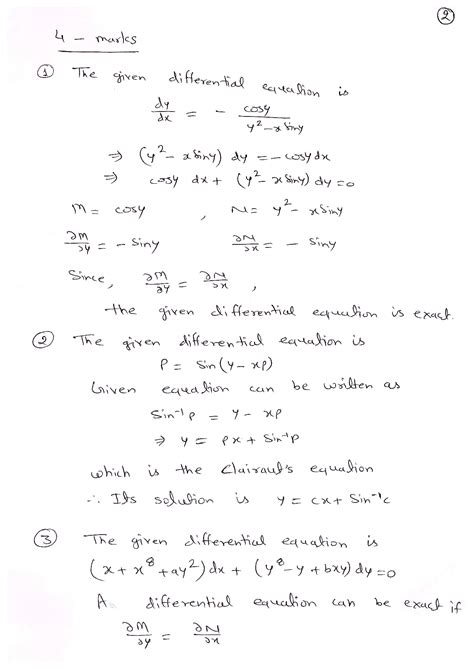 ②
4 - marks
① The given differential equation is
dy/dx = - cosy/(y² - x siny)
⇒ (y² - x siny) dy = - cosy dx
⇒ cosy dx + (y² - x siny) dy = 0
M = cosy , N = y² - x siny
∂M/∂y = - siny ∂N/∂x = - siny
Since, ∂M/∂y = ∂N/∂x ,
the given differential equation is exact.
② The given differential equation is
P = Sin(y - xp)
Given equation can be written as
Sin⁻¹p = y - xp
⇒ y = px + Sin⁻¹p
which is the Clairaut's equation
∴ Its solution is y = cx + Sin⁻¹c
③ The given differential equation is
(x + x⁸ + ay²) dx + (y⁸ - y + bxy) dy = 0
A differential equation can be exact if
∂M/∂y = ∂N/∂x